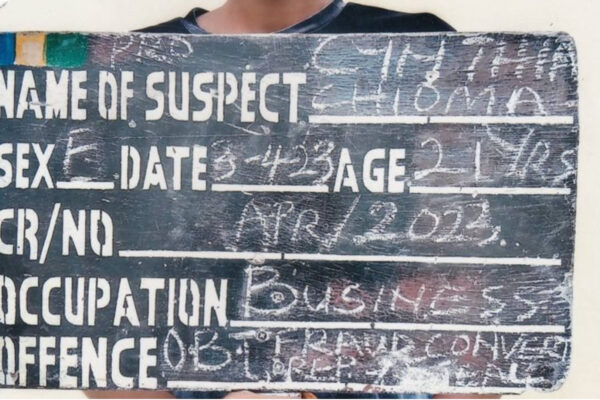 PRO CYNTHIA
NAME OF SUSPECT CHIOMA
SEX F DATE 3-4-23 AGE 21 YRS
CR/NO APR/2023.
OCCUPATION BUSINESS
OFFENCE OBT FRAUD CONVERT